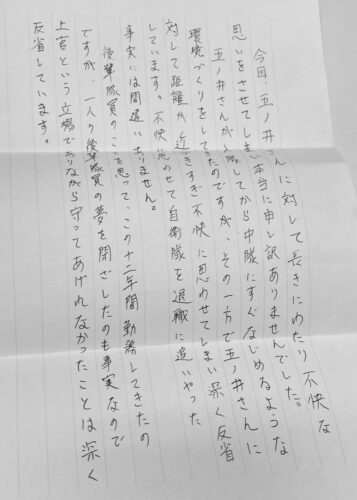 今回、五ノ井さんに対して長きにわたり不快な
思いをさせてしまい本当に申し訳ありませんでした。
五ノ井さんが入隊してから中隊にすぐなじめるような
環境づくりをしてきたのですが、その一方で五ノ井さんに
対して距離が近すぎ不快に思わせてしまい深く反省
しています。不快に思わせて自衛隊を退職に追いやった
事実には間違いありません。
後輩隊員のことを思って、この十二年間勤務してきたの
ですが、一人の後輩隊員の夢を閉ざしたのも事実なので
上官という立場でありながら守ってあげれなかったことは深く
反省しています。